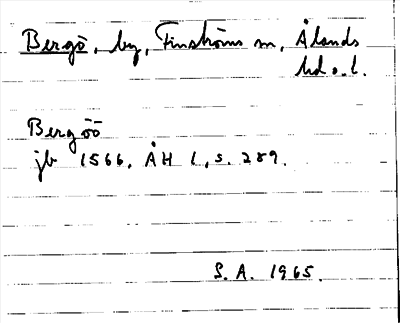 Bergö, by, Finströms sn, Ålands
hd o. l.
Bergöö
jb 1566, ÅH 1, s. 289.
S. A. 1965.